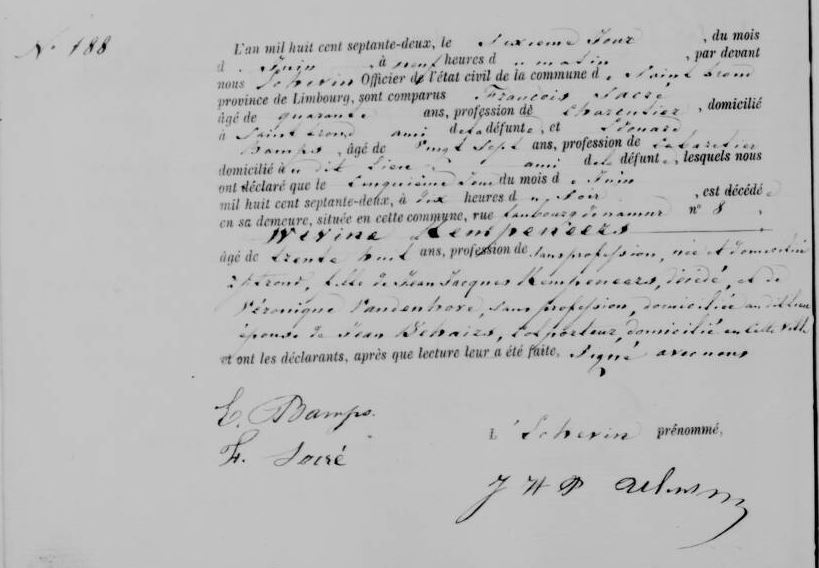 N.° 188
L'an mil huit cent septante-deux, le Sixième Jour, du mois
d. Juin, à neuf heures d u matin, par devant
nous Echevin Officier de l'état civil de la commune d e Saint trond
province de Limbourg, sont comparus François Sacré
âgé de quarante ans, profession de charentier, domicilié
à Saint trond ami de la défunte, et Edouard
Bamps, âgé de Vingt Sept ans, profession de Cabaretier
domicilié à u dit Lieu ami de la défunte, lesquels nous
ont déclaré que le Cinquième Jour du mois d e Juin
mil huit cent septante-deux, à dix heures d u Soir, est décédée
en sa demeure, située en cette commune, rue faubourg de namur n° 8,
Wivina Kempeneers
âgé de trente huit ans, profession de sans profession, née et domiciliée
à St trond, fille de Jean Jacques Kempeneers, décédé, et de
Véronique Vandenhove, sans profession, domiciliée au dit lieu
épouse de Jean, Colporteur, domicilié en cette ville
et ont les déclarants, après que lecture leur a été faite, Signé avec nous
E. Bamps.
L'Echevin prénommé,
F. Sacré
J H P